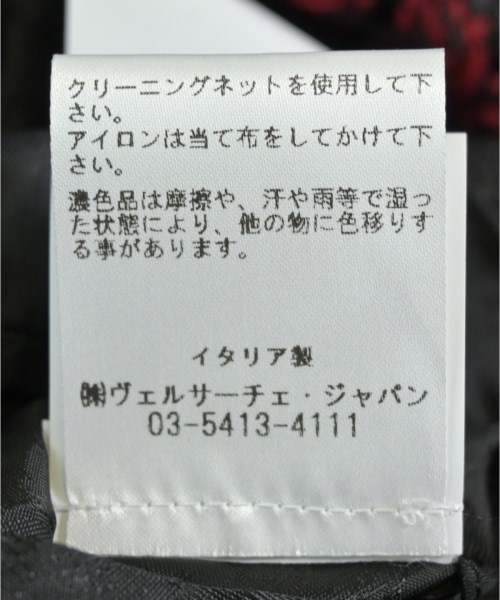 クリーニングネットを使用して下
さい。
アイロンは当て布をしてかけて下
さい。
濃色品は摩擦や、汗や雨等で湿っ
た状態により、他の物に色移りす
る事があります。
イタリア製
㈱ヴェルサーチェ・ジャパン
03-5413-4111